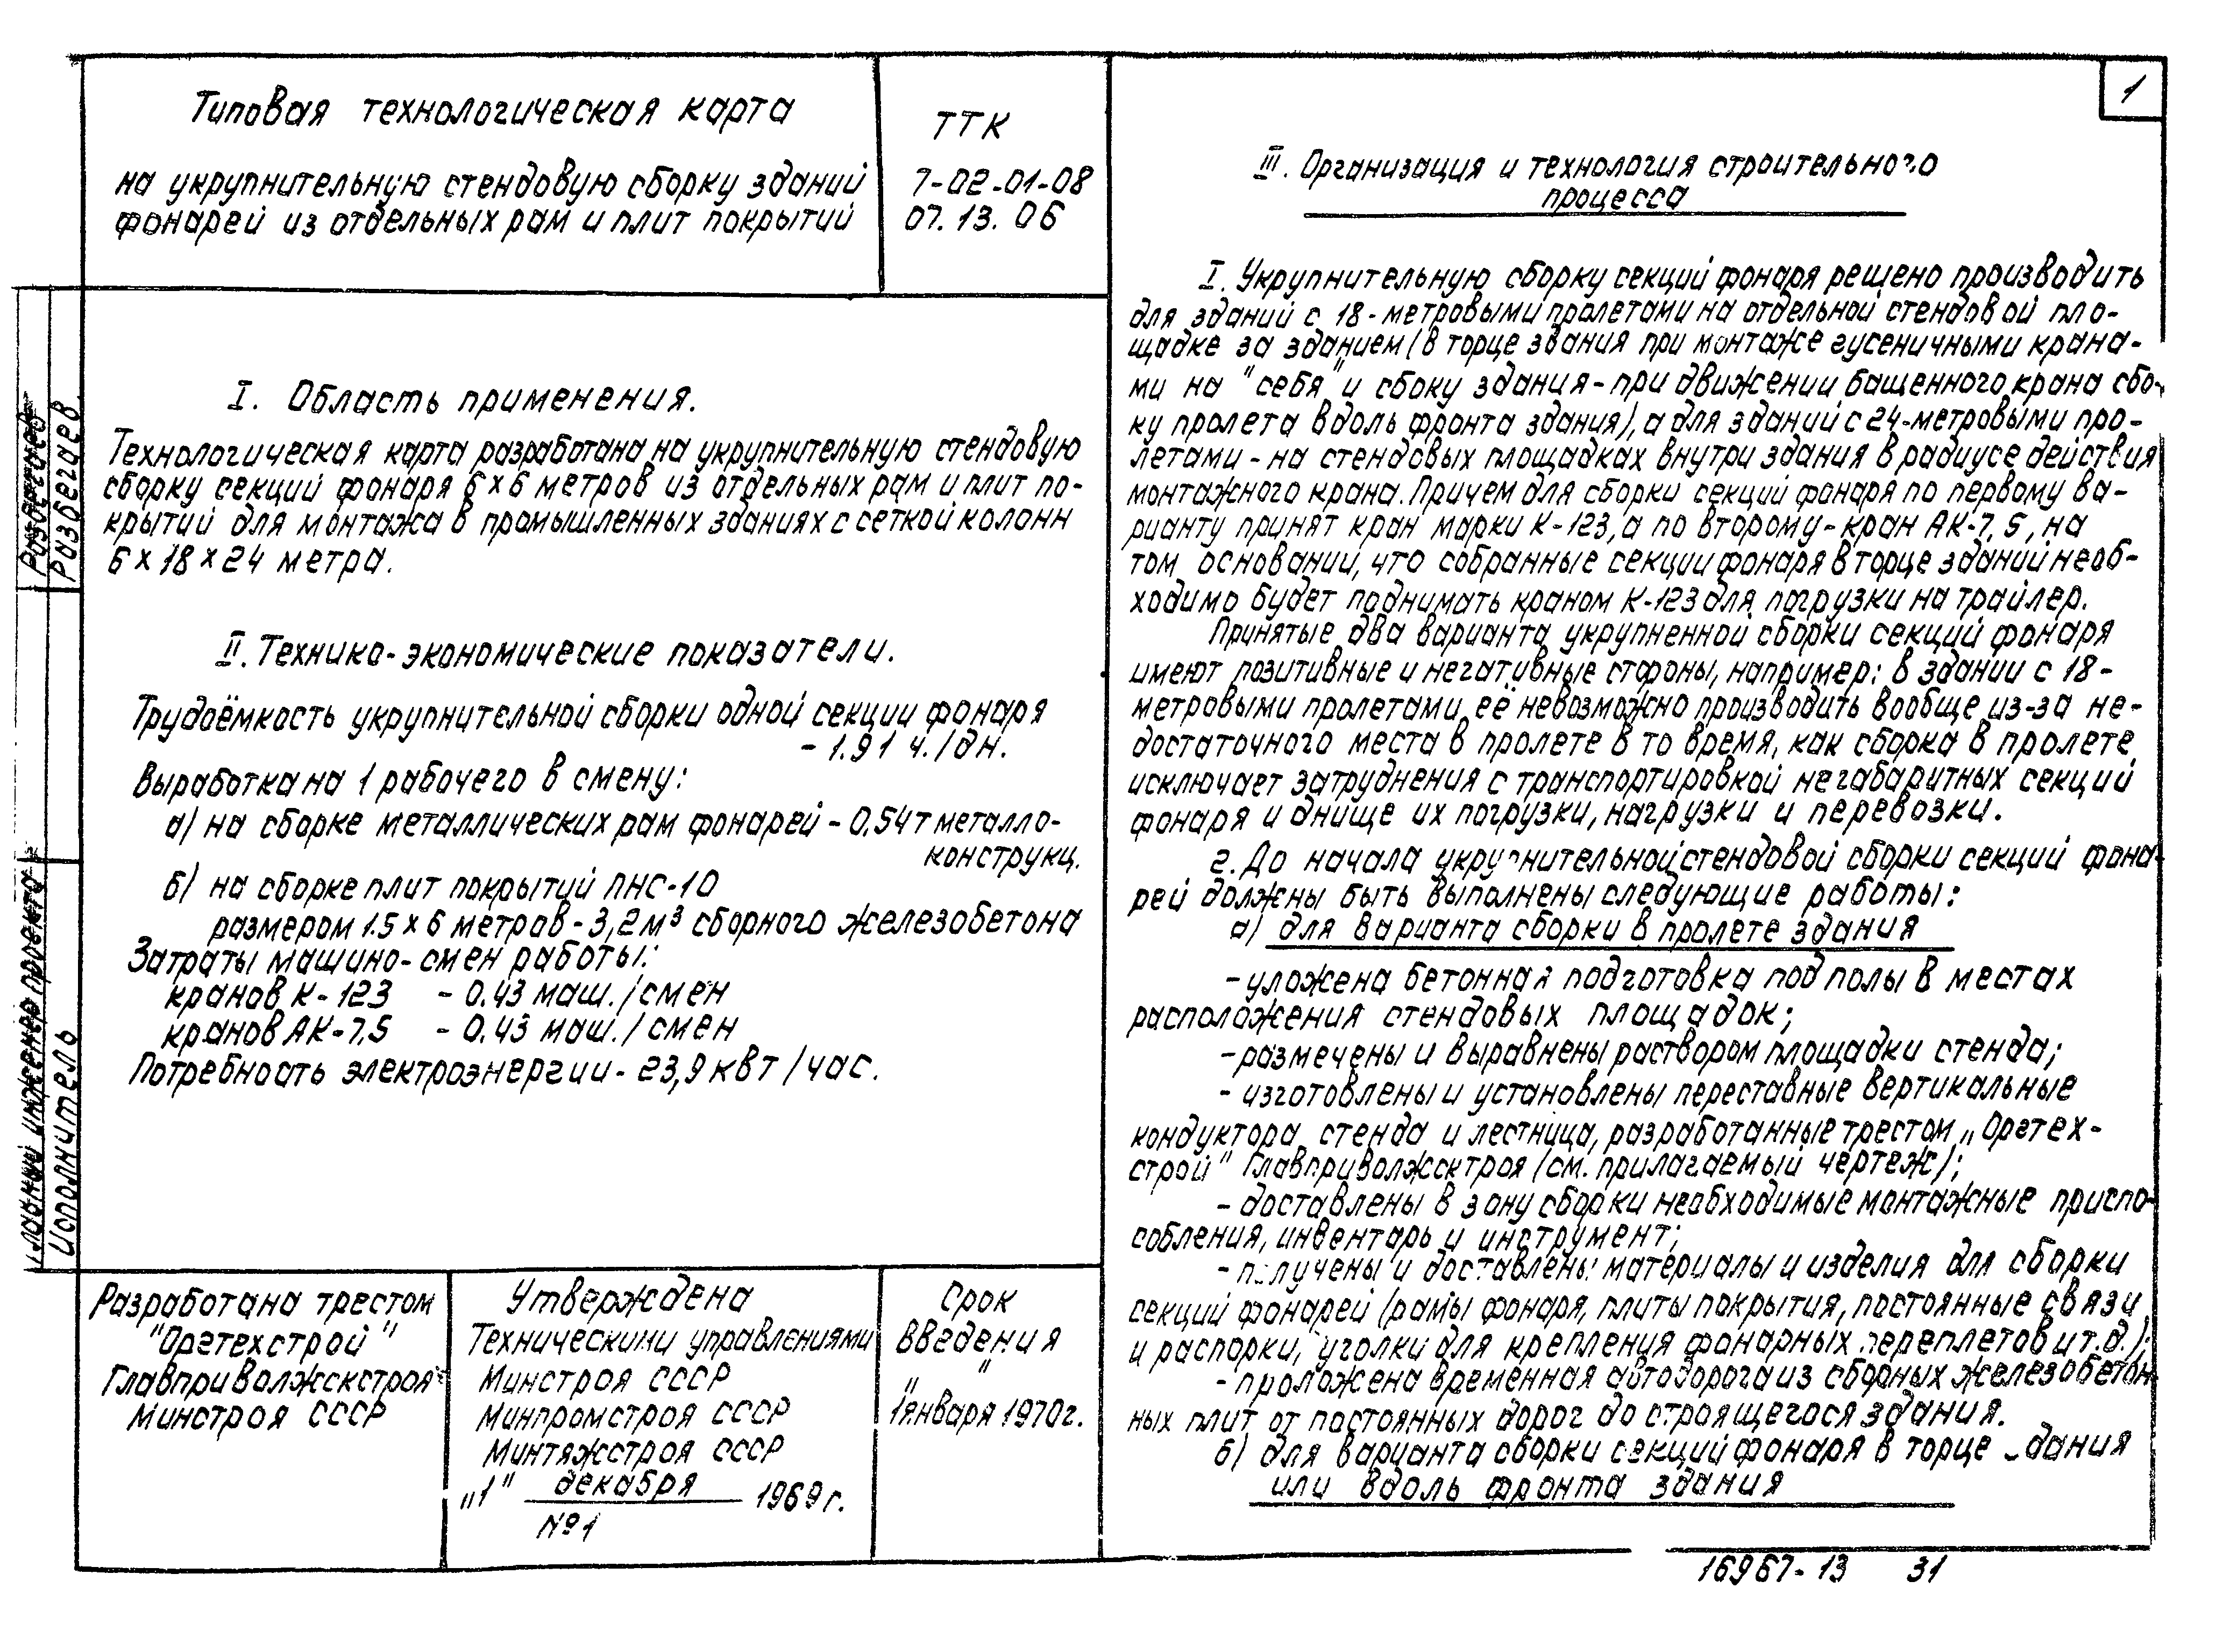 Типовая технологическая карта
на укрупнительную стендовую сборку зданий
фонарей из отдельных рам и плит покрытий
ТТК
7-02-01-08
07.13.06
I. Область применения.
Технологическая карта разработана на укрупнительную стендовую
сборку секций фонаря 6×6 метров из отдельных рам и плит по-
крытий для монтажа в промышленных зданиях с сеткой колонн
6×18×24 метра.
II. Технико-экономические показатели.
Трудоёмкость укрупнительной сборки одной секции фонаря
- 1.91 ч./дн.
Выработка на 1 рабочего в смену:
а) на сборке металлических рам фонарей - 0,54т металло-
конструкц.
б) на сборке плит покрытий ПНС-10
размером 1.5×6 метров - 3,2м³ сборного железобетона
Затраты машино-смен работы:
кранов К-123 - 0.43 маш./смен
кранов АК-7,5 - 0.43 маш./смен
Потребность электроэнергии - 23,9 квт/час.
Разбегаев
Главный инженер проекта
Исполнитель
Разработана трестом
"Оргтехстрой"
Главприволжскстроя
Минстроя СССР
Утверждена
Техническими управлениями
Минстроя СССР
Минпромстроя СССР
Минтяжстроя СССР
„1" декабря 1969г.
№1
Срок
введения
„ "
1января 1970г.
1
III. Организация и технология строительного
процесса
I. Укрупнительную сборку секций фонаря решено производить
для зданий с 18-метровыми пролетами на отдельной стендовой пло-
щадке за зданием (в торце звания при монтаже гусеничными крана-
ми на "себя" и сбоку здания - при движении башенного крана сбо-
ку пролета вдоль фронта здания), а для зданий с 24-метровыми про-
летами - на стендовых площадках внутри здания в радиусе действия
монтажного крана. Причем для сборки секций фонаря по первому ва-
рианту принят кран марки К-123, а по второму - кран АК-7,5, на
том основании, что собранные секции фонаря в торце зданий необ-
ходимо будет поднимать краном К-123 для погрузки на трайлер.
Принятые два варианта укрупненной сборки секций фонаря
имеют позитивные и негативные стороны, например: в здании с 18-
метровыми пролетами её невозможно производить вообще из-за не-
достаточного места в пролете в то время, как сборка в пролете
исключает затруднения с транспортировкой негабаритных секций
фонаря и днище их погрузки, нагрузки и перевозки.
2. До начала укрупнительной стендовой сборки секций фона-
рей должны быть выполнены следующие работы:
а) для варианта сборки в пролете здания
- уложена бетонная подготовка под полы в местах
расположения стендовых площадок;
- размечены и выравнены раствором площадки стенда;
- изготовлены и установлены переставные вертикальные
кондуктора стенда и лестница, разработанные трестом „Оргтех-
строй" Главприволжсктроя (см. прилагаемый чертеж);
- доставлены в зону сборки необходимые монтажные приспо-
собления, инвентарь и инструмент;
- получены и доставлены материалы и изделия для сборки
секций фонарей (рамы фонаря, плиты покрытия, постоянные связи
и распорки, уголки для крепления фонарных переплетов и т.д.);
- проложена временная автодорога из сборных железобетон-
ных плит от постоянных дорог до строящегося здания.
б) для варианта сборки секций фонаря в торце здания
или вдоль фронта здания
16967-13 31